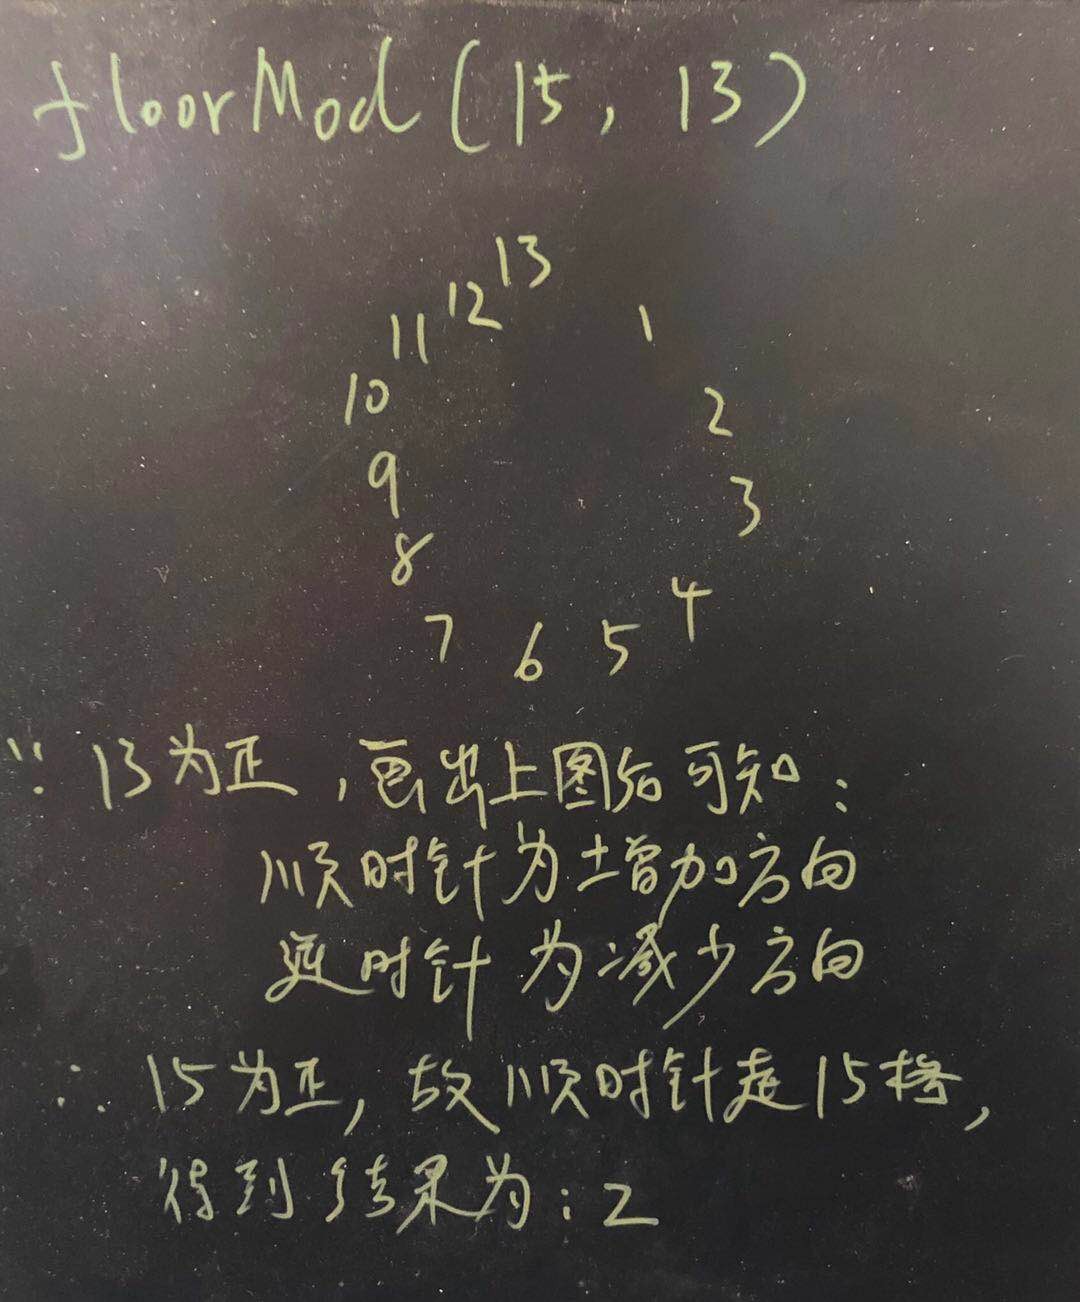 floorMod(15, 13)
13
12
1
11
10
2
9
3
8
4
7
6
5
∵ 13为正,画出上图后可知:
顺时针为增加方向
逆时针为减少方向
∴ 15为正,故顺时针走15格,
得到结果为:2